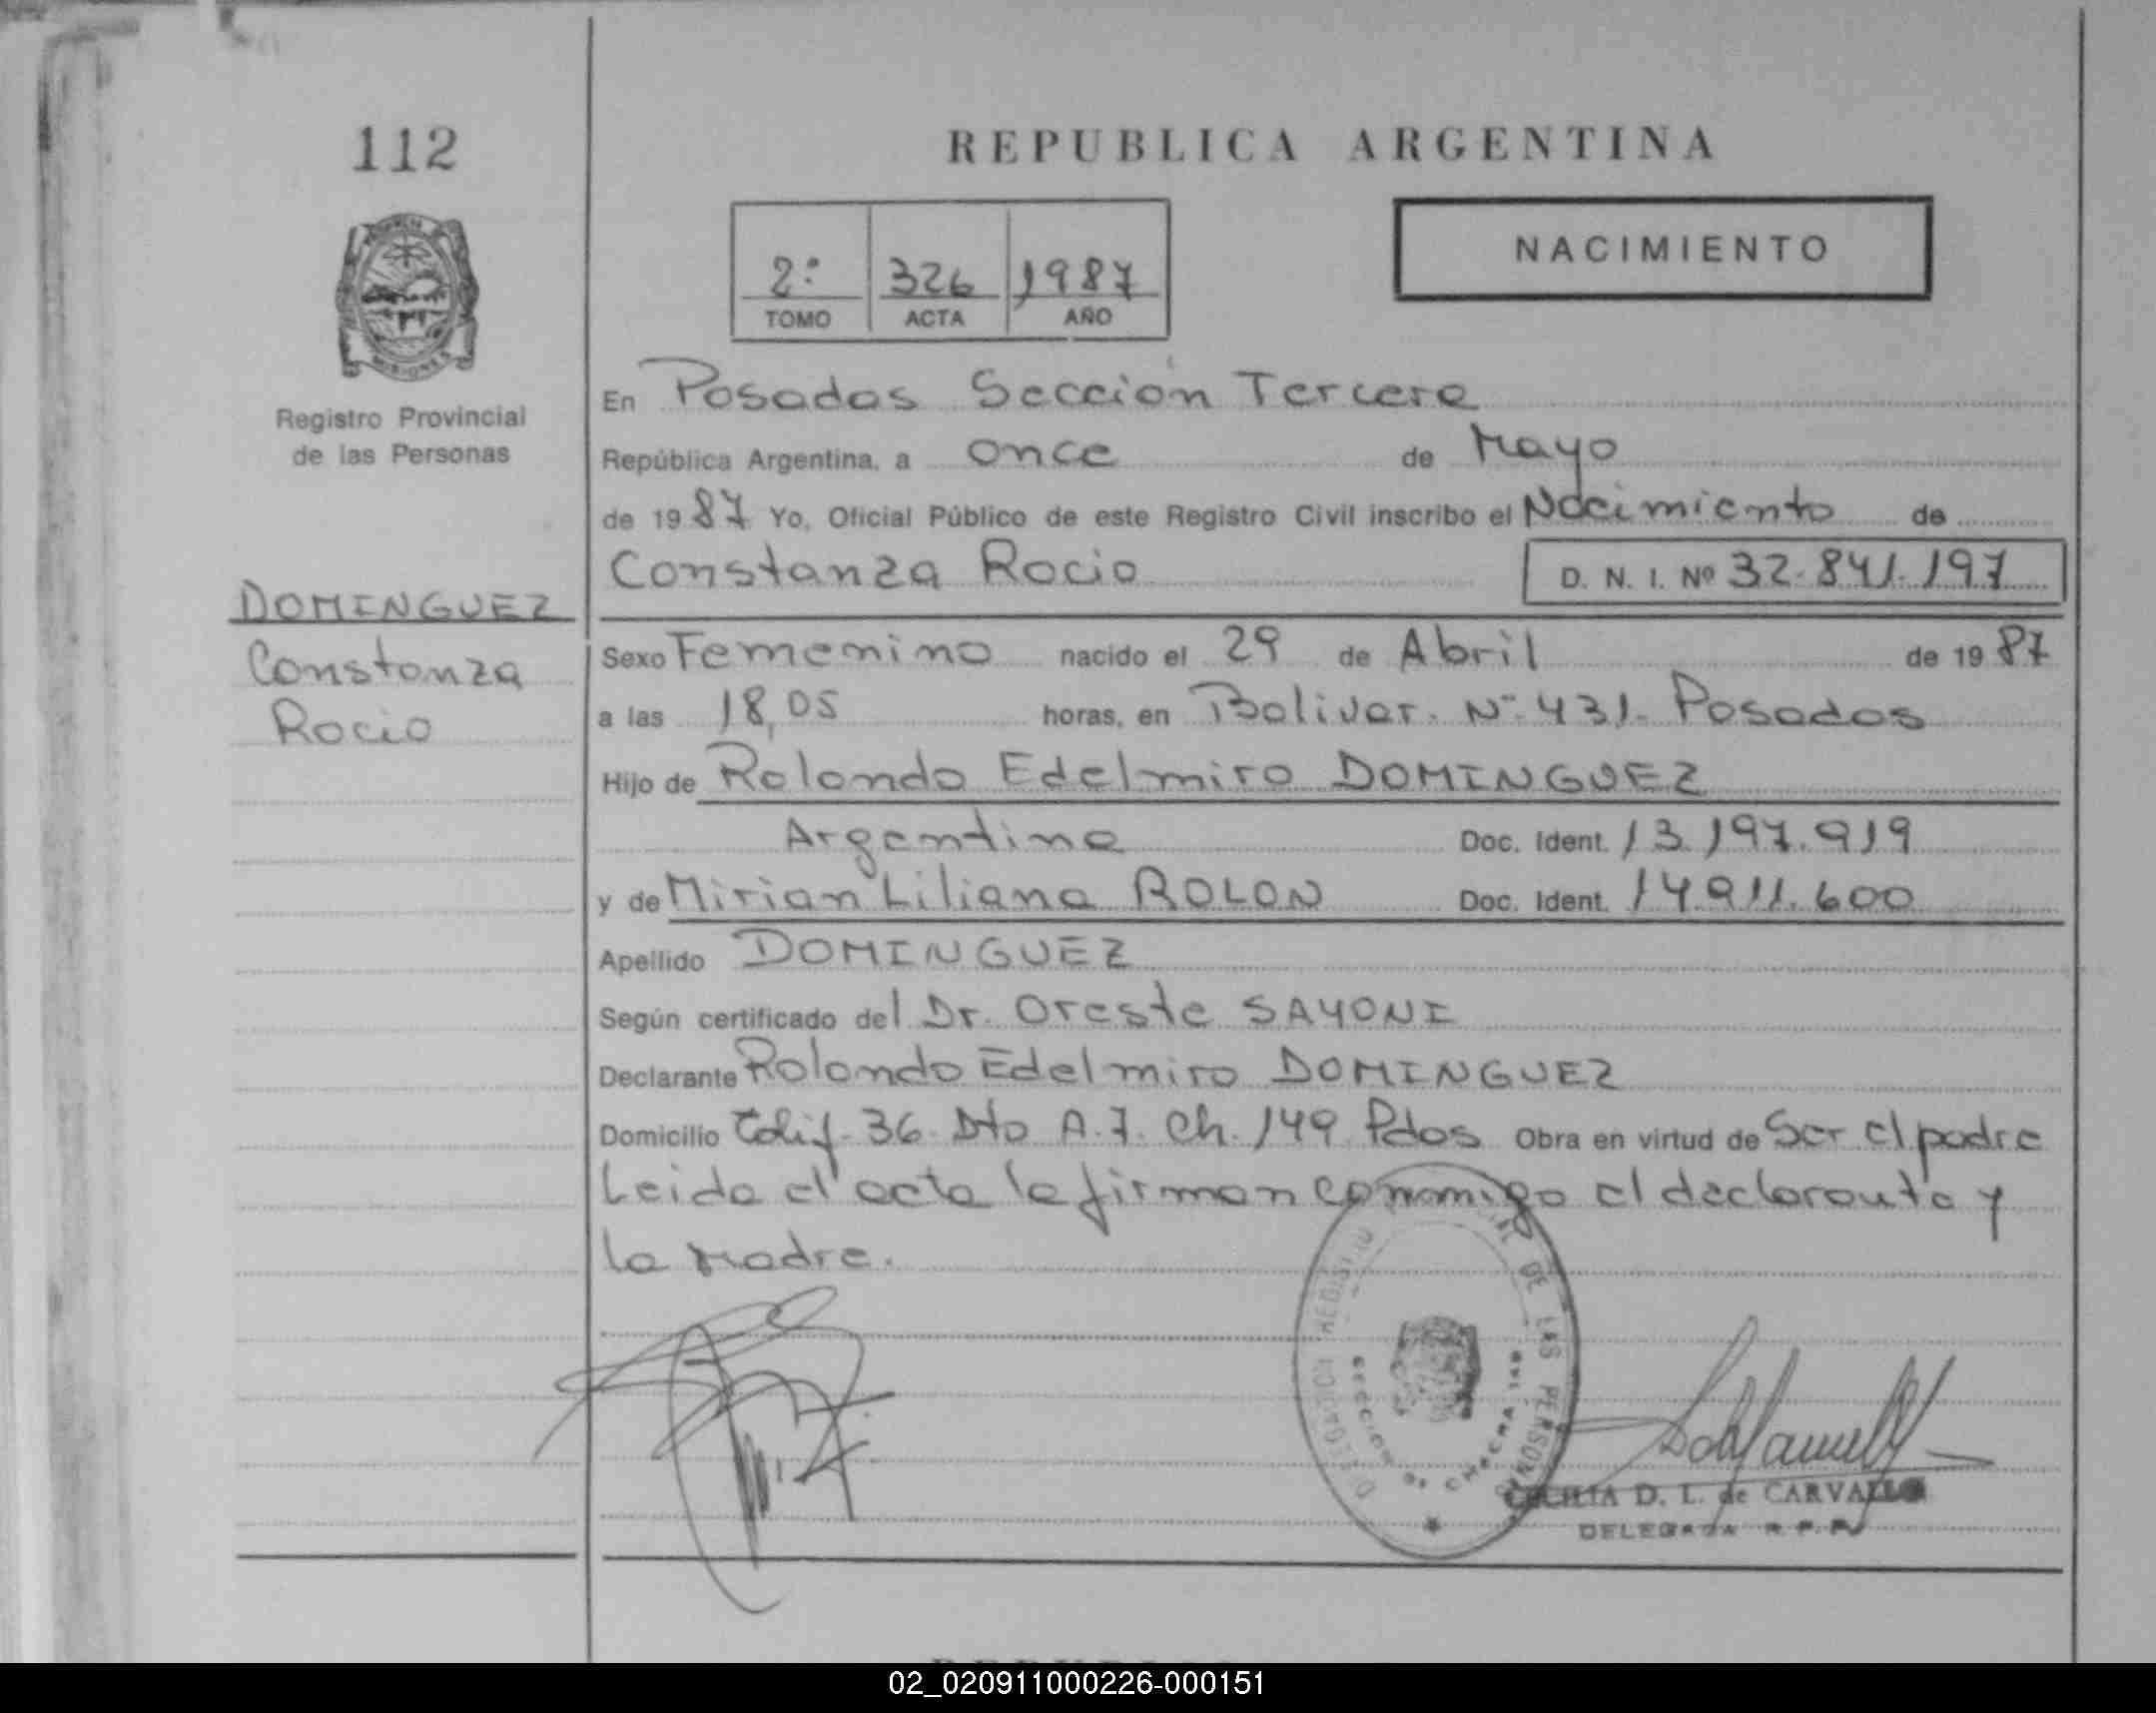 112
REPUBLICA ARGENTINA
2º 326 1987
TOMO ACTA AÑO
NACIMIENTO
MISIONES
Registro Provincial
de las Personas
DOMINGUEZ
Constanza
Rocio
En Posadas Sección Tercera
República Argentina, a once de Mayo
de 1987 Yo, Oficial Público de este Registro Civil inscribo el Nacimiento de
Constanza Rocio D. N. I. Nº 32.841.197
Sexo Femenino nacido el 29 de Abril de 1987
a las 18,05 horas, en Bolivar. Nº 431. Posadas
Hijo de Rolando Edelmiro DOMINGUEZ
Argentina Doc. Ident. 13.197.919
y de Mirian Liliana ROLON Doc. Ident. 14.911.600
Apellido DOMINGUEZ
Según certificado del Dr. Oreste SAYONI
Declarante Rolando Edelmiro DOMINGUEZ
Domicilio Edif. 36. Dto A.7. Ch. 149 Pdos Obra en virtud de Ser el padre
Leida el acta la firman conmigo el declarante y
la Madre.
DE LAS PERSONAS
SECCION CHACRA 149
CECILIA D. L. de CARVALLO
DELEGADA R.P.P.
02_020911000226-000151